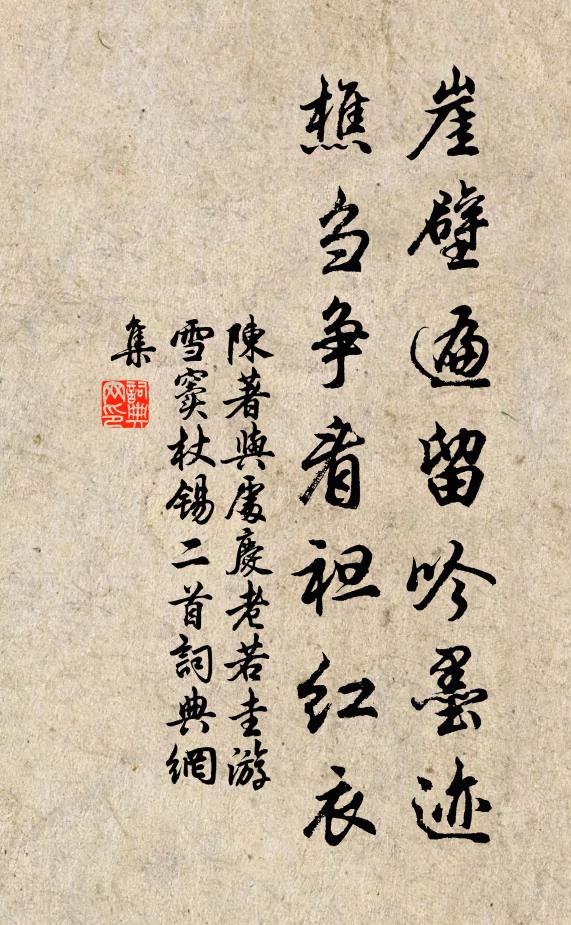 崖壁遍留吟墨迹
樵刍争看袒红衣
陳著與處慶老若圭游
雪竇杖錫二首詞典網
集
詞典
网印